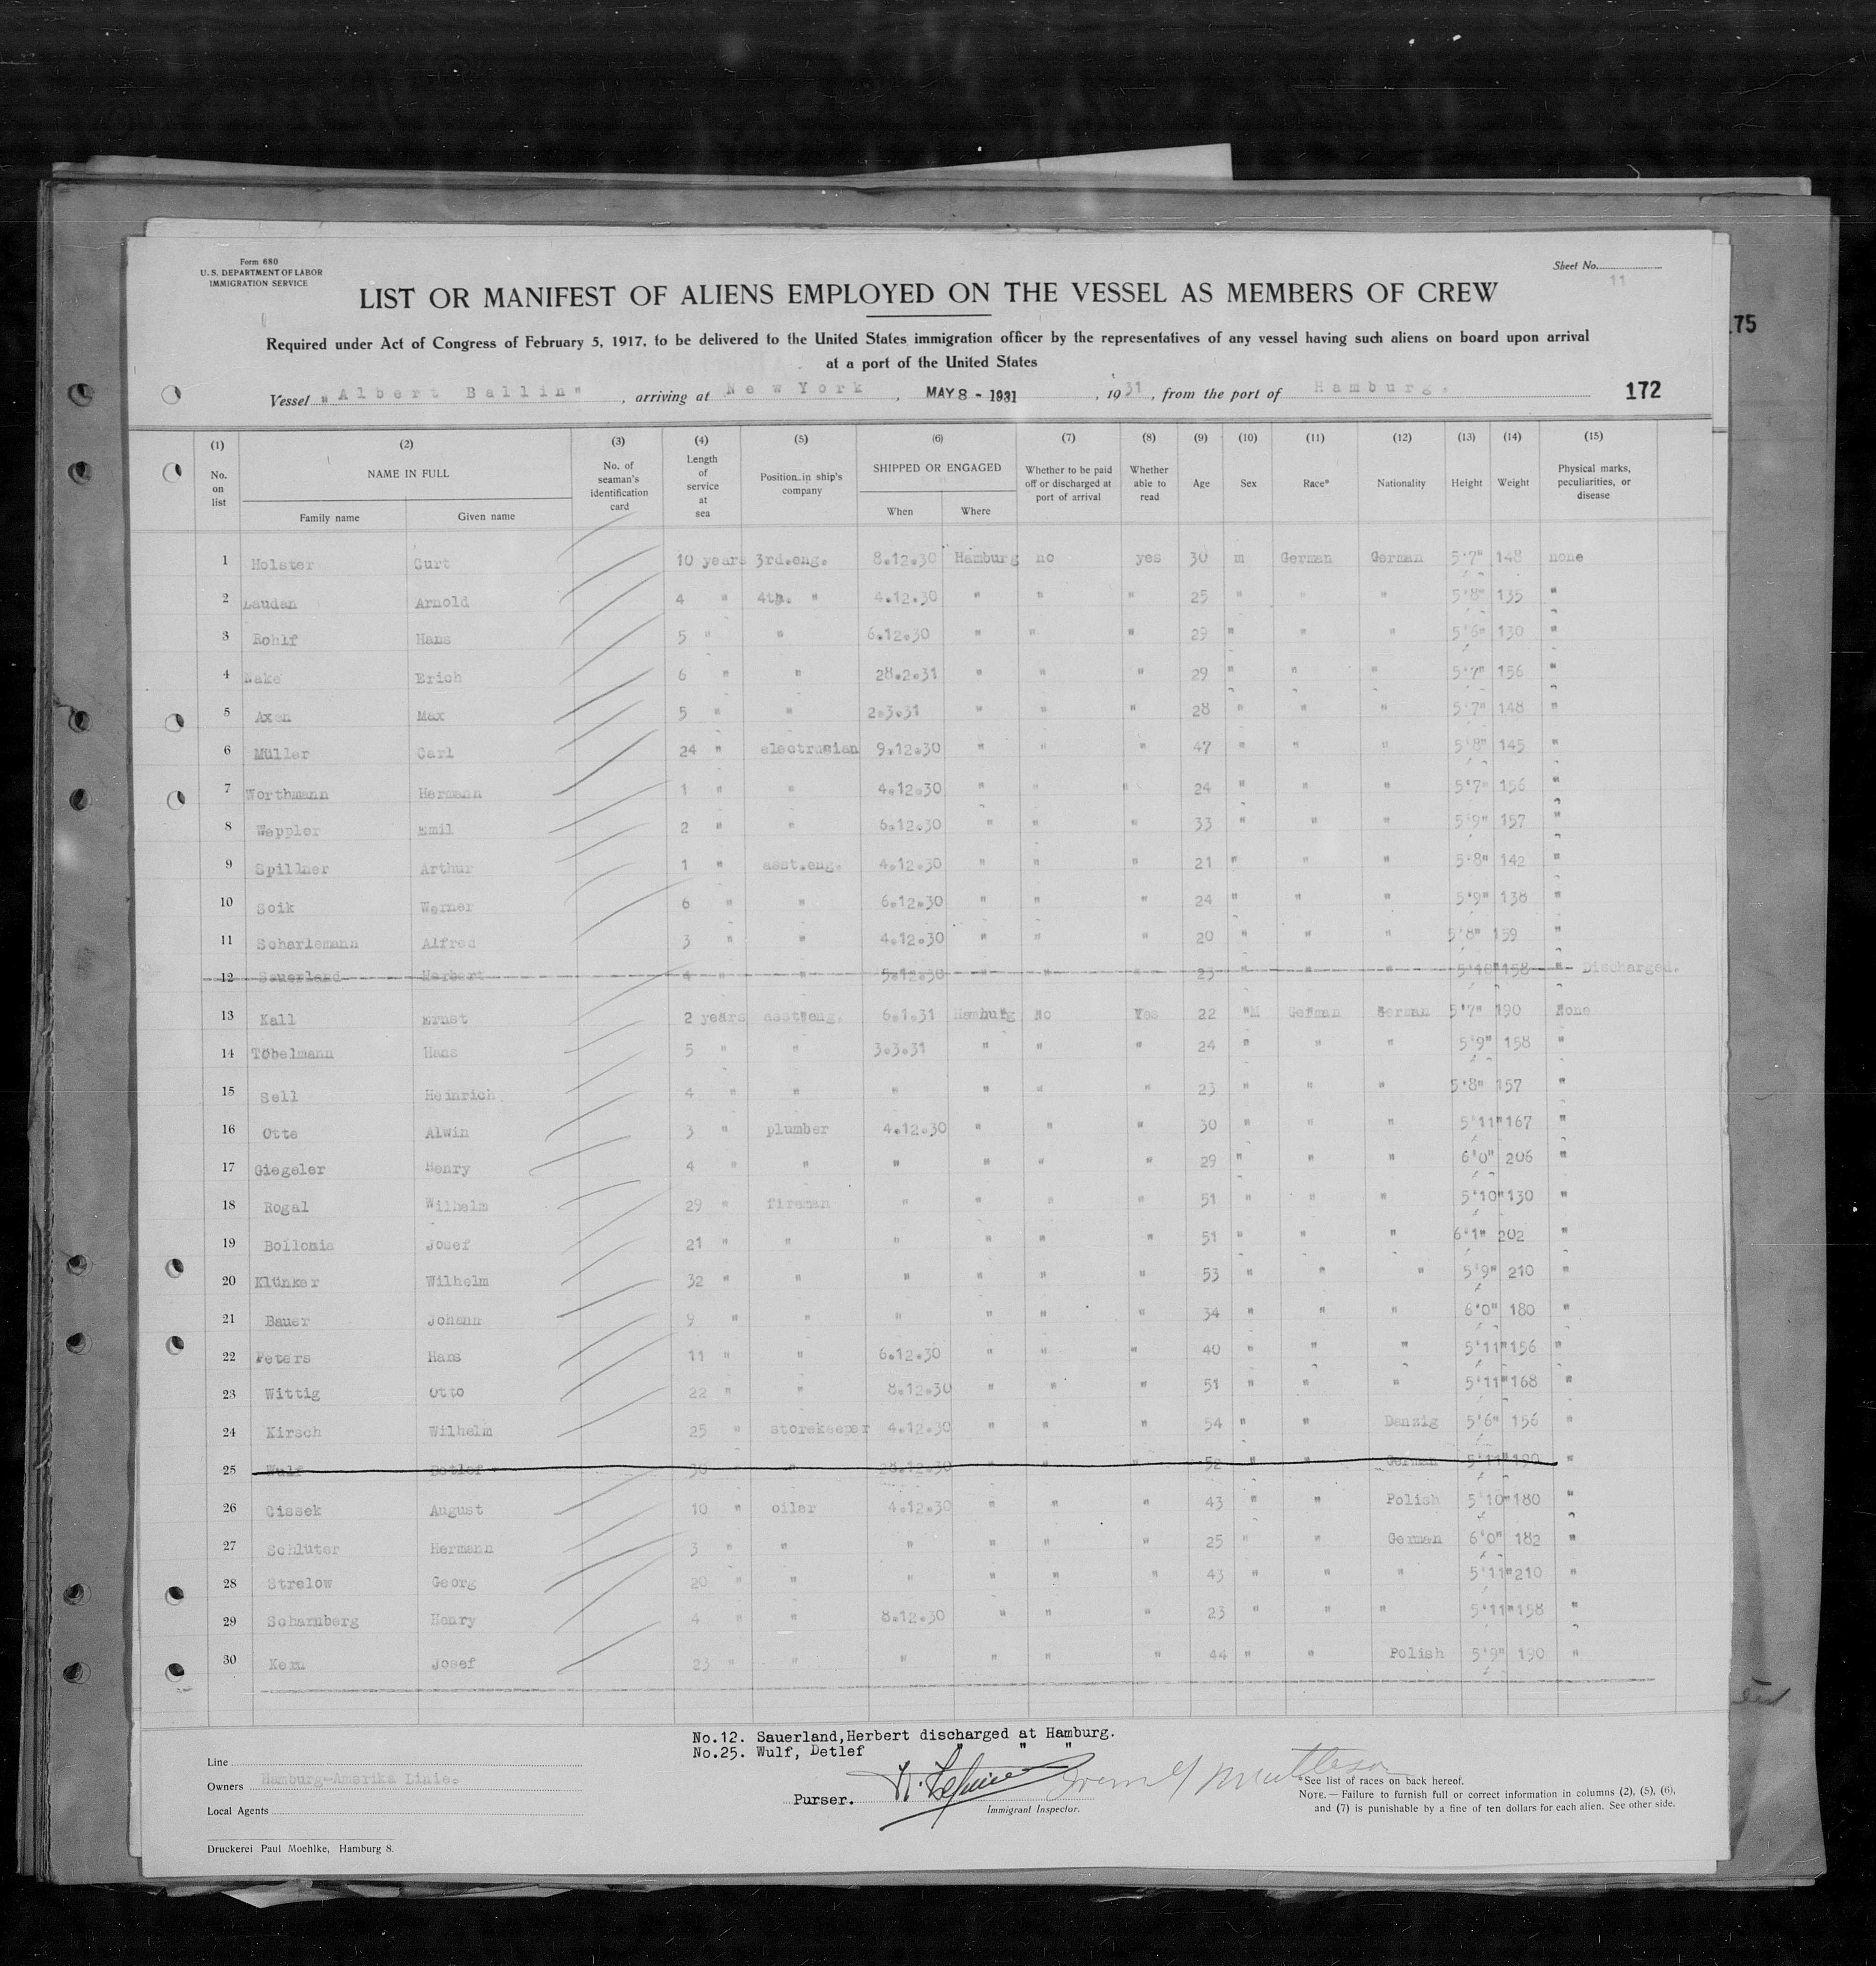 Form 680
U. S. DEPARTMENT OF LABOR
IMMIGRATION SERVICE
Sheet No. 11
LIST OR MANIFEST OF ALIENS EMPLOYED ON THE VESSEL AS MEMBERS OF CREW
Required under Act of Congress of February 5, 1917, to be delivered to the United States immigration officer by the representatives of any vessel having such aliens on board upon arrival
at a port of the United States
Vessel "Albert Ballin", arriving at New York, MAY 8 - 1931, 1931, from the port of Hamburg. 172
175
(1) (2) (3) (4) (5) (6) (7) (8) (9) (10) (11) (12) (13) (14) (15)
No. on list NAME IN FULL Family name Given name No. of seaman's identification card Length of service at sea Position in ship's company SHIPPED OR ENGAGED When Where Whether to be paid off or discharged at port of arrival Whether able to read Age Sex Race* Nationality Height Weight Physical marks, peculiarities, or disease
1 Holster Curt 10 years 3rd.eng. 8.12.30 Hamburg no yes 30 m German German 5'7" 148 none
2 Laudan Arnold 4 " 4th. " 4.12.30 " " " 25 " " " 5'8" 135 "
3 Rohlf Hans 5 " " 6.12.30 " " " 29 " " " 5'6" 130 "
4 Nake Erich 6 " " 28.2.31 " " " 29 " " " 5'7" 156 "
5 Axen Max 5 " " 2.3.31 " " " 28 " " " 5'7" 148 "
6 Müller Carl 24 " electrusian 9.12.30 " " " 47 " " " 5'8" 145 "
7 Worthmann Hermann 1 " " 4.12.30 " " " 24 " " " 5'7" 156 "
8 Weppler Emil 2 " " 6.12.30 " " " 33 " " " 5'9" 157 "
9 Spillner Arthur 1 " asst.eng. 4.12.30 " " " 21 " " " 5'8" 142 "
10 Soik Werner 6 " " 6.12.30 " " " 24 " " " 5'9" 138 "
11 Scharlemann Alfred 3 " " 4.12.30 " " " 20 " " " 5'8" 159 "
12 Sauerland Herbert 4 " " 5.12.30 " " " 23 " " " 5'10" 158 " Discharged.
13 Kall Ernst 2 years asst.eng. 6.1.31 Hamburg No Yes 22 "M German German 5'7" 190 None
14 Töbelmann Hans 5 " " 3.3.31 " " " 24 " " " 5'9" 158 "
15 Sell Heinrich 4 " " " " " " 23 " " " 5'8" 157 "
16 Otte Alwin 3 " plumber 4.12.30 " " " 30 " " " 5'11" 167 "
17 Giegeler Henry 4 " " " " " " 29 " " " 6'0" 206 "
18 Rogal Wilhelm 29 " fireman " " " " 51 " " " 5'10" 130 "
19 Bollonia Josef 21 " " " " " " 51 " " " 6'1" 202 "
20 Klünker Wilhelm 32 " " " " " " 53 " " " 5'9" 210 "
21 Bauer Johann 9 " " " " " " 34 " " " 6'0" 180 "
22 Peters Hans 11 " " 6.12.30 " " " 40 " " " 5'11" 156 "
23 Wittig Otto 22 " " 8.12.30 " " " 51 " " " 5'11" 168 "
24 Kirsch Wilhelm 25 " storekeeper 4.12.30 " " " 54 " " Danzig 5'6" 156 "
25 Wulf Detlef 30 " " 28.12.30 " " " 52 " " German 5'11" 190 "
26 Cissek August 10 " oiler 4.12.30 " " " 43 " " Polish 5'10" 180 "
27 Schluter Hermann 3 " " " " " " 25 " " German 6'0" 182 "
28 Strelow Georg 20 " " " " " " 43 " " " 5'11" 210 "
29 Scharnberg Henry 4 " " 8.12.30 " " " 23 " " " 5'11" 158 "
30 Kern Josef 23 " " " " " " 44 " " Polish 5'9" 190 "
No.12. Sauerland,Herbert discharged at Hamburg.
No.25. Wulf, Detlef " " "
Line
Owners Hamburg-Amerika Linie.
Local Agents
Purser.
Immigrant Inspector.
*See list of races on back hereof.
NOTE. — Failure to furnish full or correct information in columns (2), (5), (6),
and (7) is punishable by a fine of ten dollars for each alien. See other side.
Druckerei Paul Moehlke, Hamburg 8.